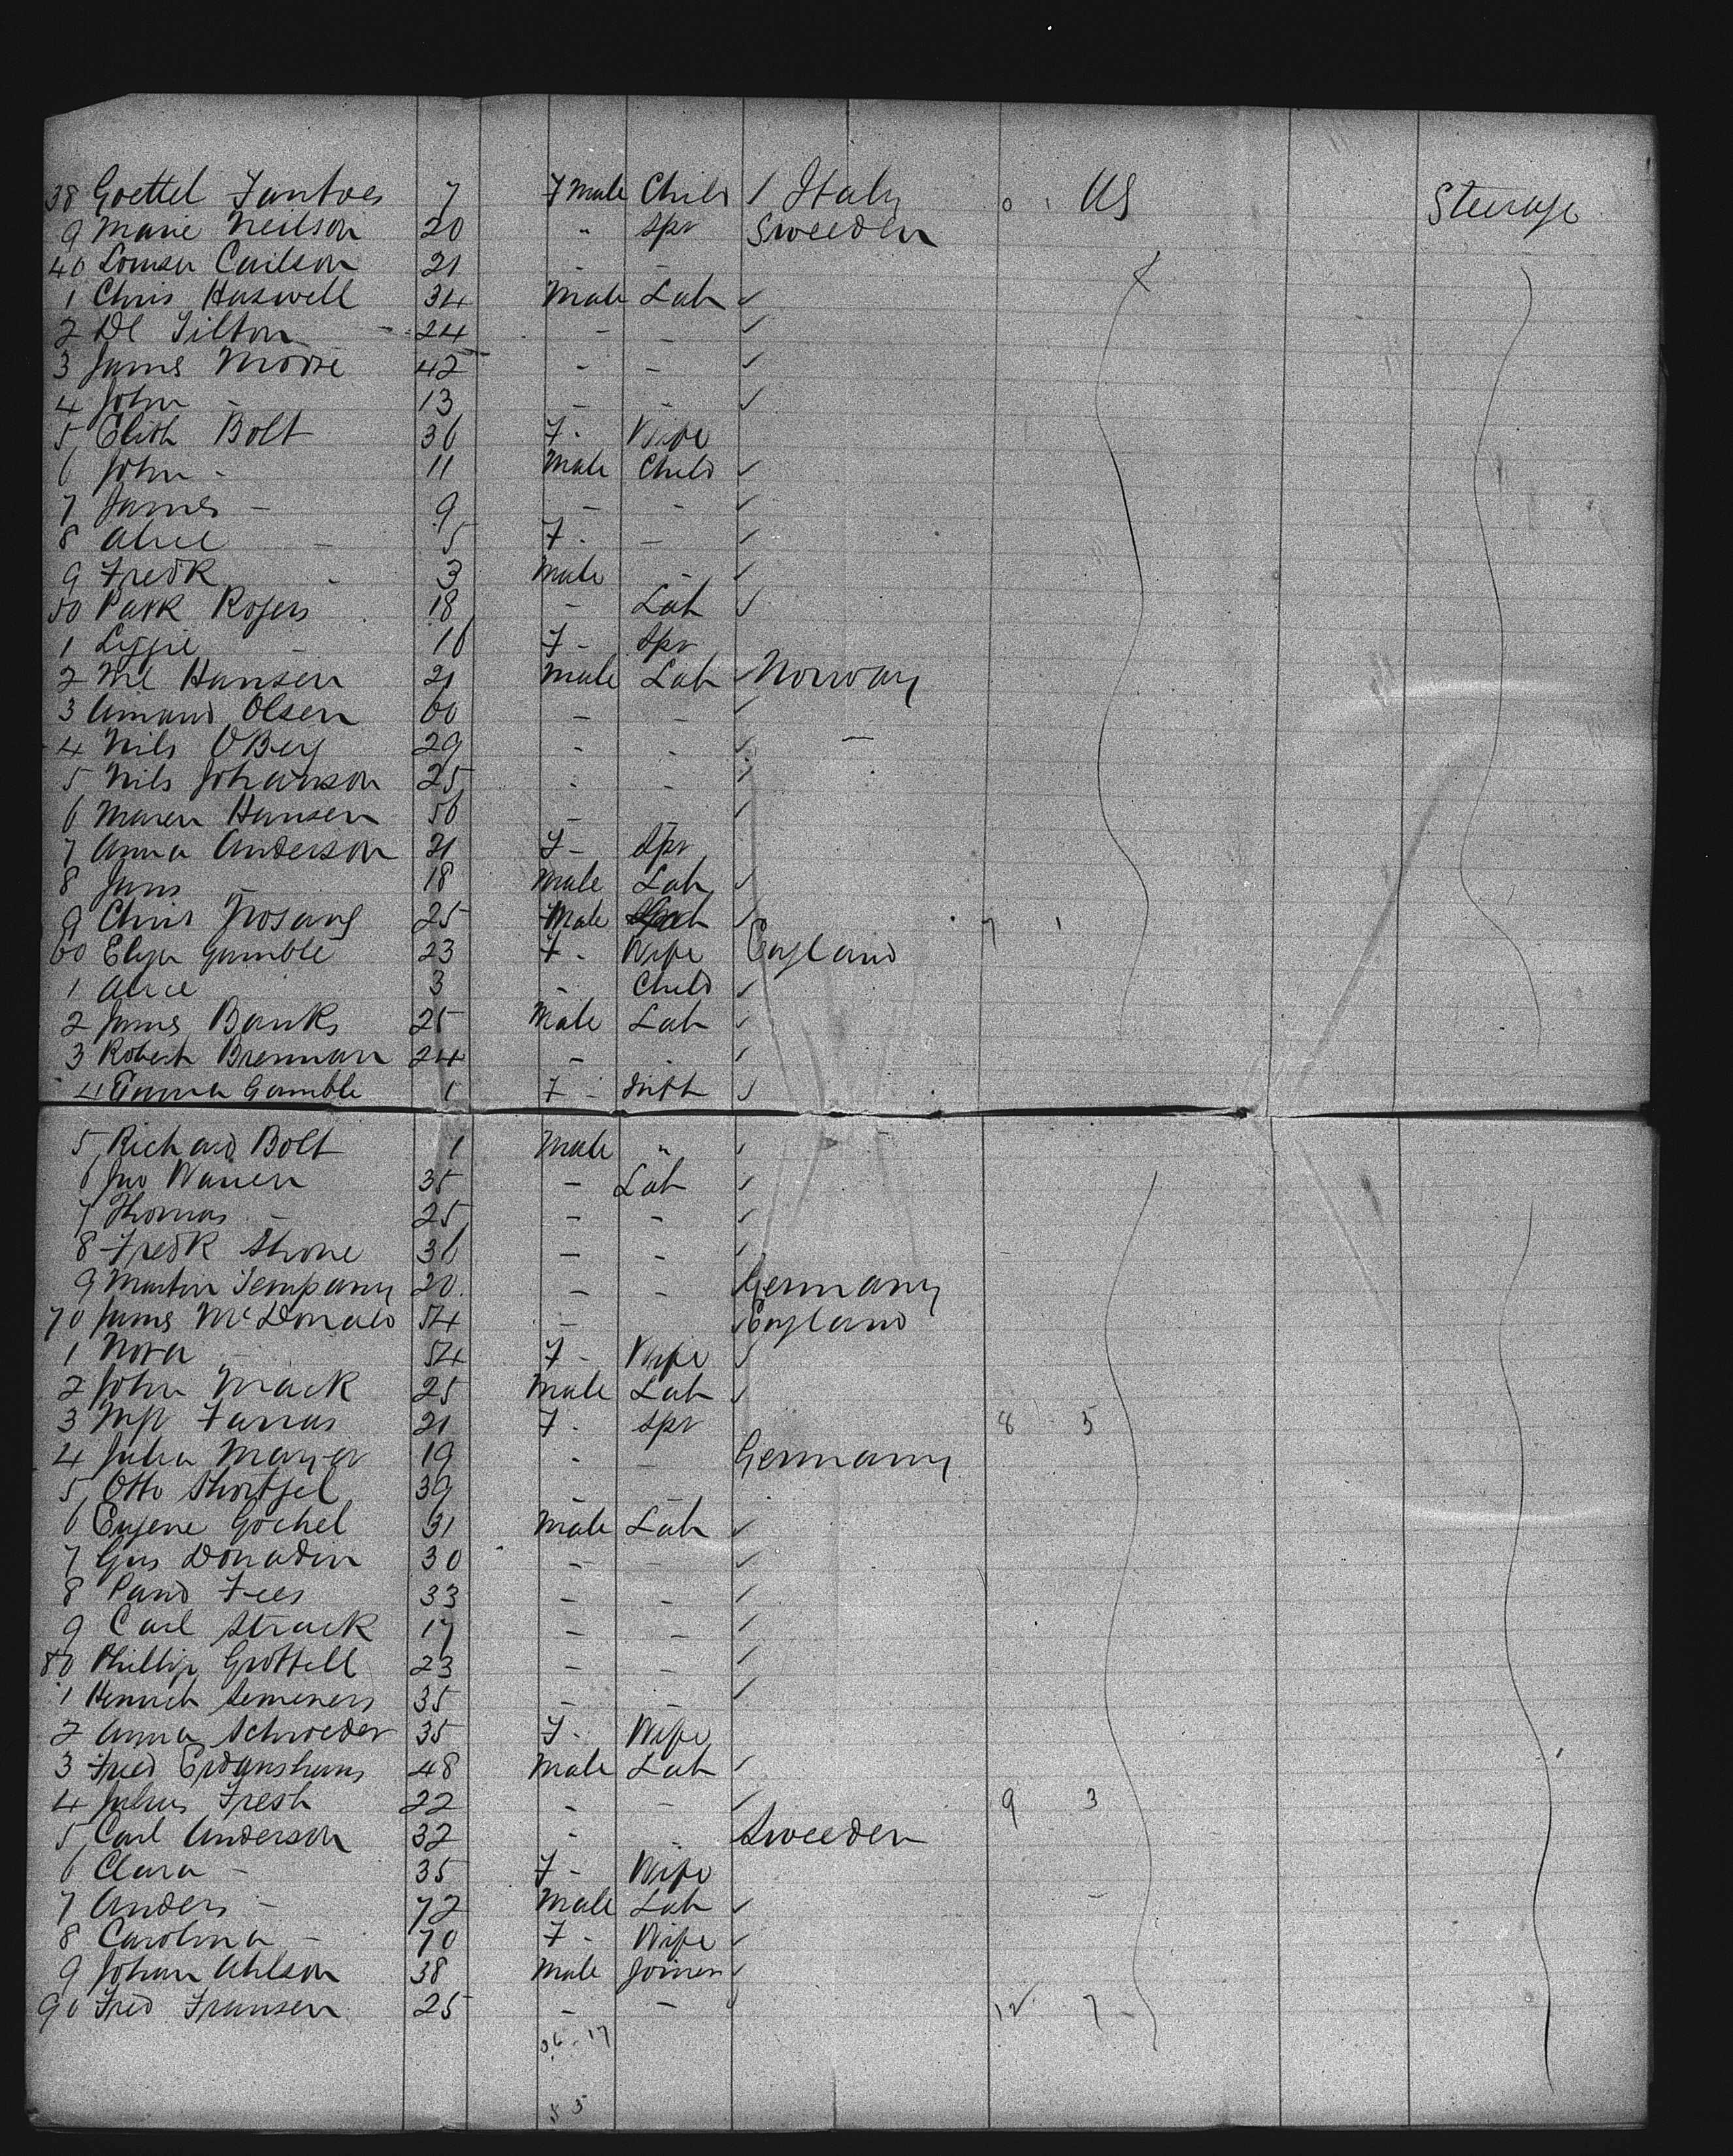 38 Goettel Fantoes 7 Fmale Child / Italy 0 . US Steerage
9 Marie Neilson 20 " Spr Sweeden
40 Louisa Carlson 21 - -
1 Chris Haswell 34 Male Lab ✓
2 Dl Tilton 24 - - ✓
3 James Moore 42 - - ✓
4 John - 13 - - ✓
5 Elith Bolt 36 F - Wife
6 John - 11 Male Child ✓
7 James - 9 - - ✓
8 Alice - 5 F - - ✓
9 Fredk - 3 Male - ✓
50 Park Rogers 18 - Lab ✓
1 Lizzie - 16 F - Spr
2 Ml Hansen 21 Male Lab Norway
3 Amand Olsen 60 - - ✓
4 Nils OBerg 29 - - ✓ -
5 Nils Johanson 25 - - ✓
6 Maren Hansen 56 - - ✓
7 Anna Anderson 21 F - Spr
8 Jans - 18 Male Lab ✓
9 Chris 25 Male ✓ 7 1
60 Eliza Gamble 23 F - Wife England
1 Alice 3 - Child ✓
2 James Banks 25 Male Lab ✓
3 Robert Brennan 24 - - ✓
4 Emma Gamble 1 F - Inft ✓
5 Richard Bolt 1 Male " ✓
6 Jno Warren 35 - Lab ✓
7 Thomas - 25 - - ✓
8 Fredk Stone 36 - - ✓
9 Martin Tempany 20 - - Germany
70 James McDonald 54 - England
1 Nora - 54 F - Wife ✓
2 John Mack 25 Male Lab ✓
3 Farras 21 F - Spr 8 5
4 Julia Mayer 19 - - Germany
5 Otto 39 - -
6 Eugene Gochel 31 Male Lab ✓
7 Gus Donadin 30 - - ✓
8 Fees 33 - - ✓
9 Carl Strack 17 - - ✓
80 Phillip Grottell 23 - - ✓
1 Henrich Semeners 35 - - ✓
2 Anna Schroeder 35 F - Wife
3 Fred 48 Male Lab ✓
4 Julius Fresh 22 - - ✓ 9 3
5 Carl Anderson 32 - - Sweeden
6 Clara - 35 F - Wife
7 Anders - 72 Male Lab ✓ -
8 Carolina - 70 F - Wife ✓
9 Johan Ahlson 38 Male Joiner ✓
90 Fred Fransen 25 - - 12 7 -
36 - 17